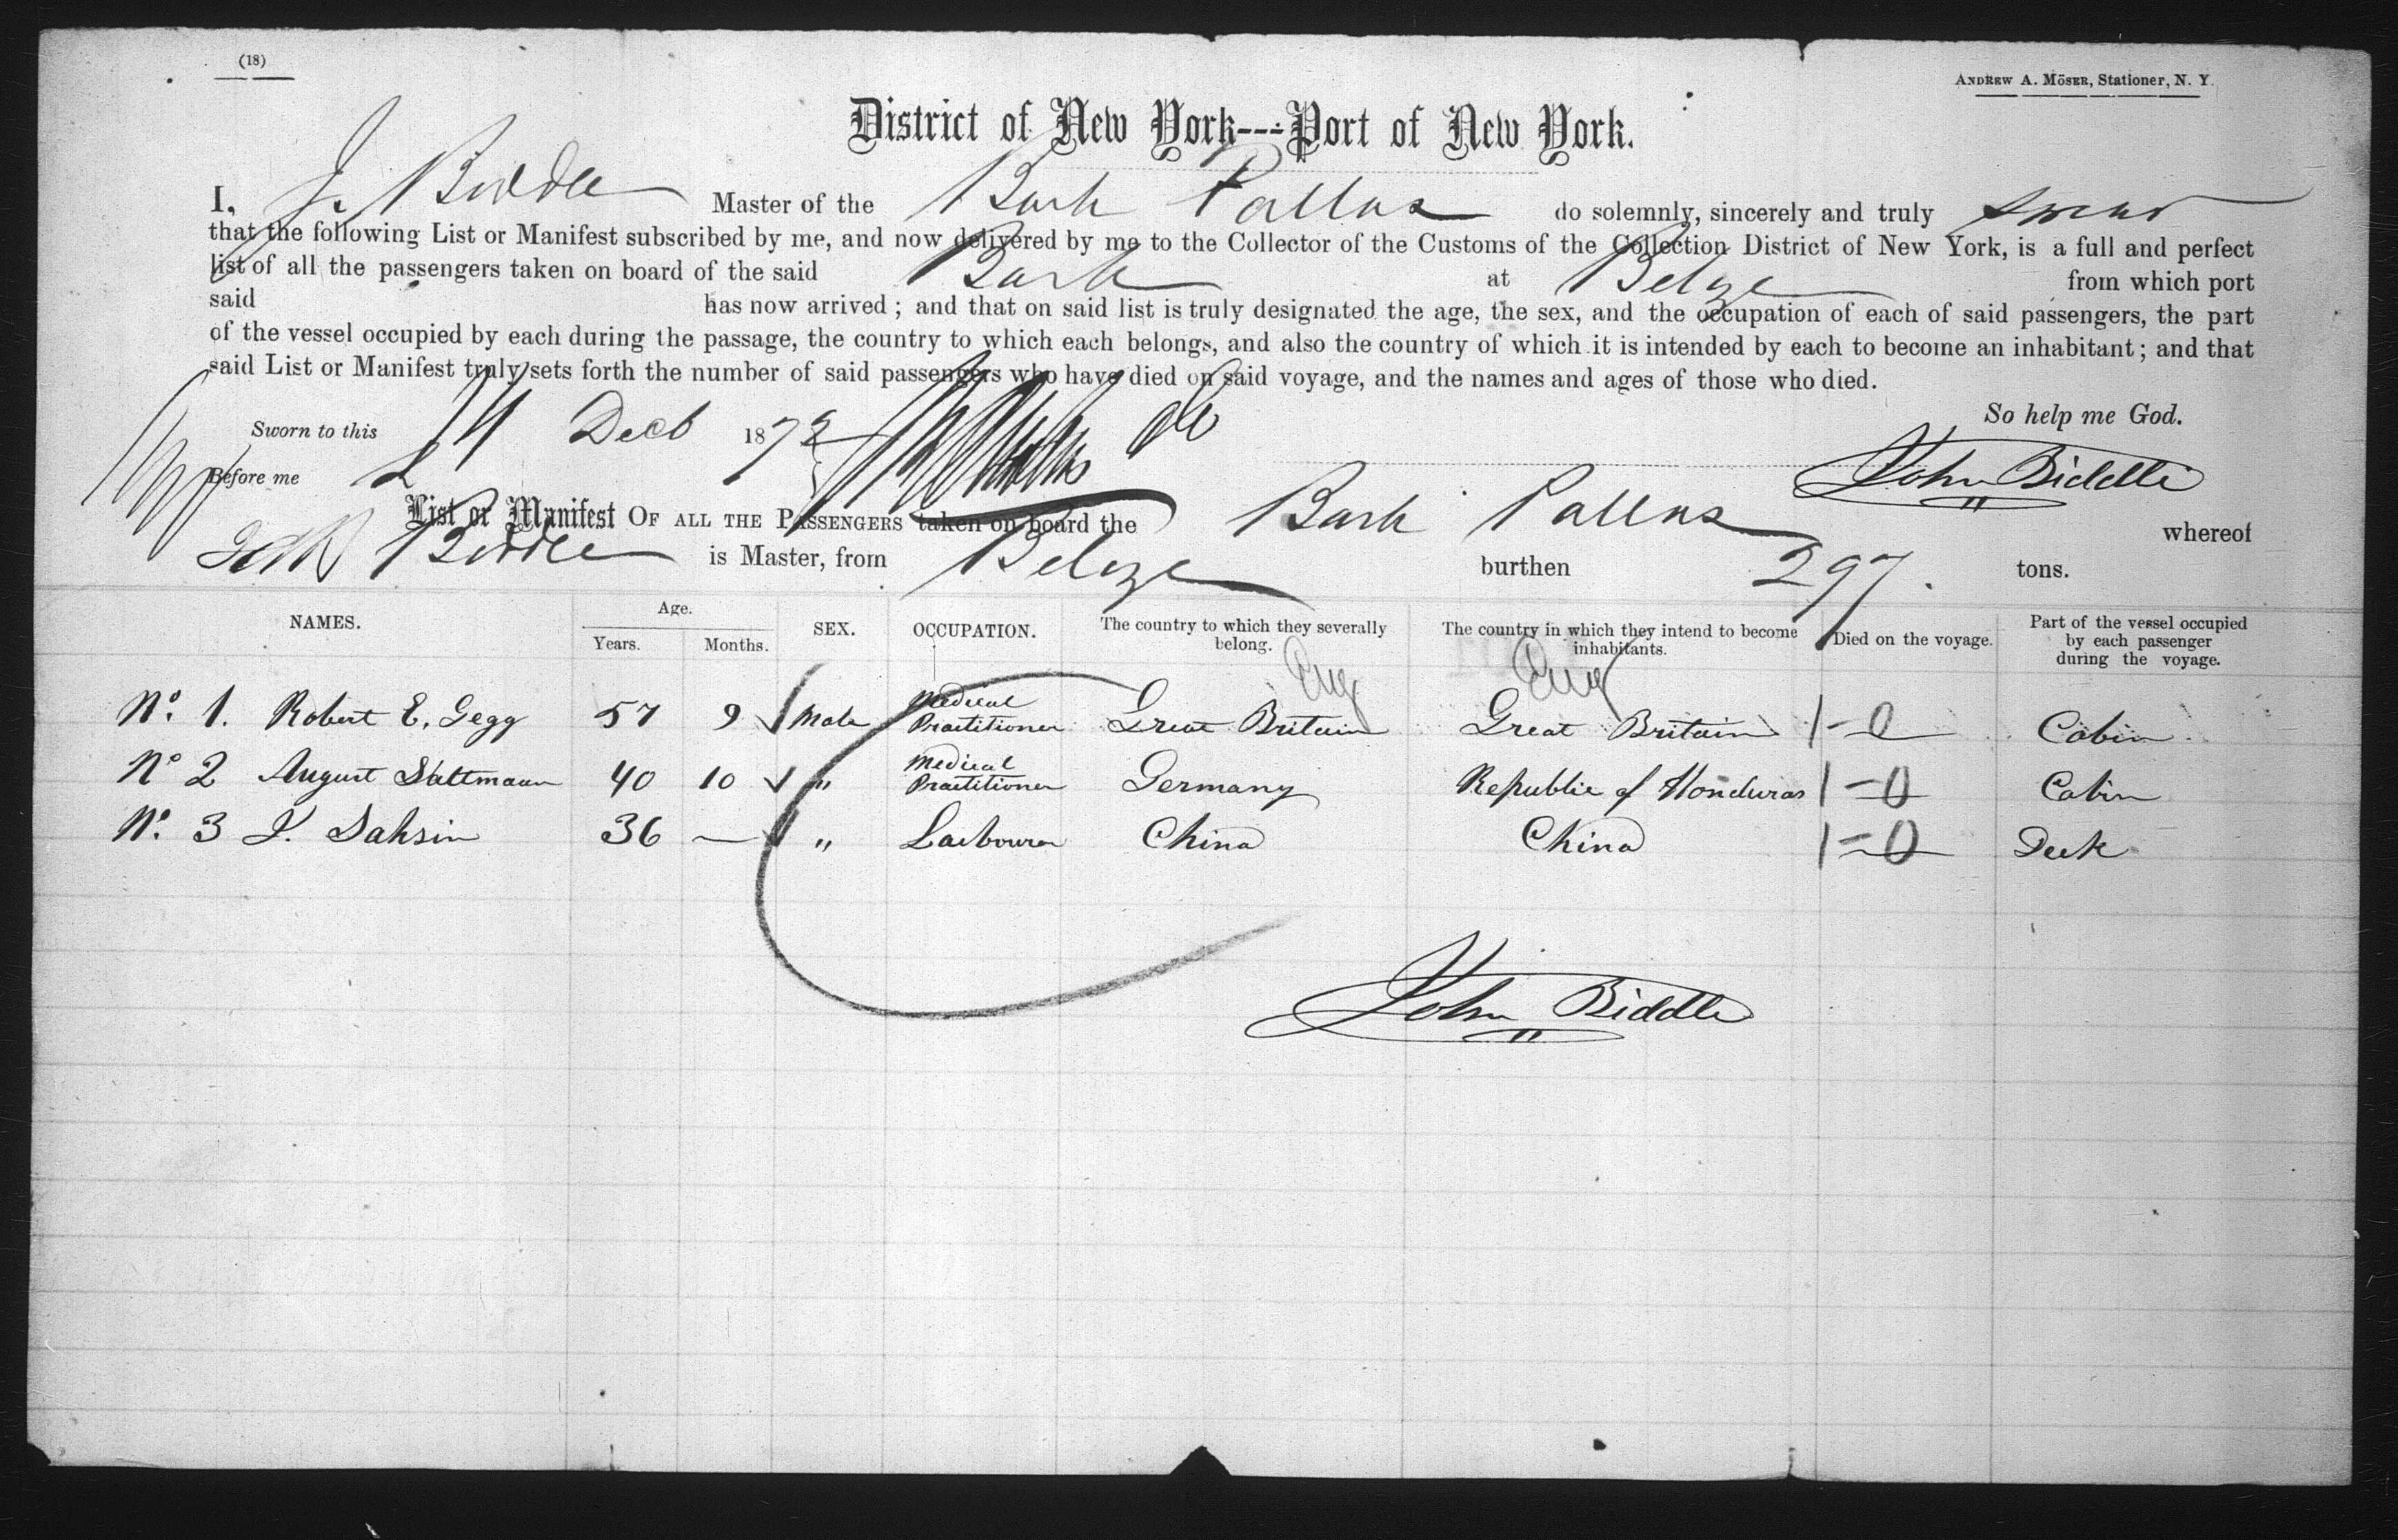 (18)
ANDREW A. MÖSER, Stationer, N. Y.
District of New York---Port of New York.
I, J. Biddle Master of the Bark Pallas do solemnly, sincerely and truly swear
that the following List or Manifest subscribed by me, and now delivered by me to the Collector of the Customs of the Collection District of New York, is a full and perfect
list of all the passengers taken on board of the said Bark at Belize from which port
said has now arrived; and that on said list is truly designated the age, the sex, and the occupation of each of said passengers, the part
of the vessel occupied by each during the passage, the country to which each belongs, and also the country of which it is intended by each to become an inhabitant; and that
said List or Manifest truly sets forth the number of said passengers who have died on said voyage, and the names and ages of those who died.
So help me God.
Sworn to this 24 Decb 1872
John Biddle
Before me
List or Manifest OF ALL THE PASSENGERS taken on board the Bark Pallas whereof
Biddle is Master, from Belize burthen 297 tons.
NAMES. Age. Years. Months. SEX. OCCUPATION. The country to which they severally belong. The country in which they intend to become inhabitants. Died on the voyage. Part of the vessel occupied by each passenger during the voyage.
Eng Eng
No. 1. Robert E. Gegg 57 9 Male Medical Practitioner Great Britain Great Britain 1-0 Cabin
No 2 August Saltmann 40 10 " Medical Practitioner Germany Republic of Honduras 1-0 Cabin
No. 3 J. Sahsin 36 — " Labourer China China 1-0 Deck
John Biddle